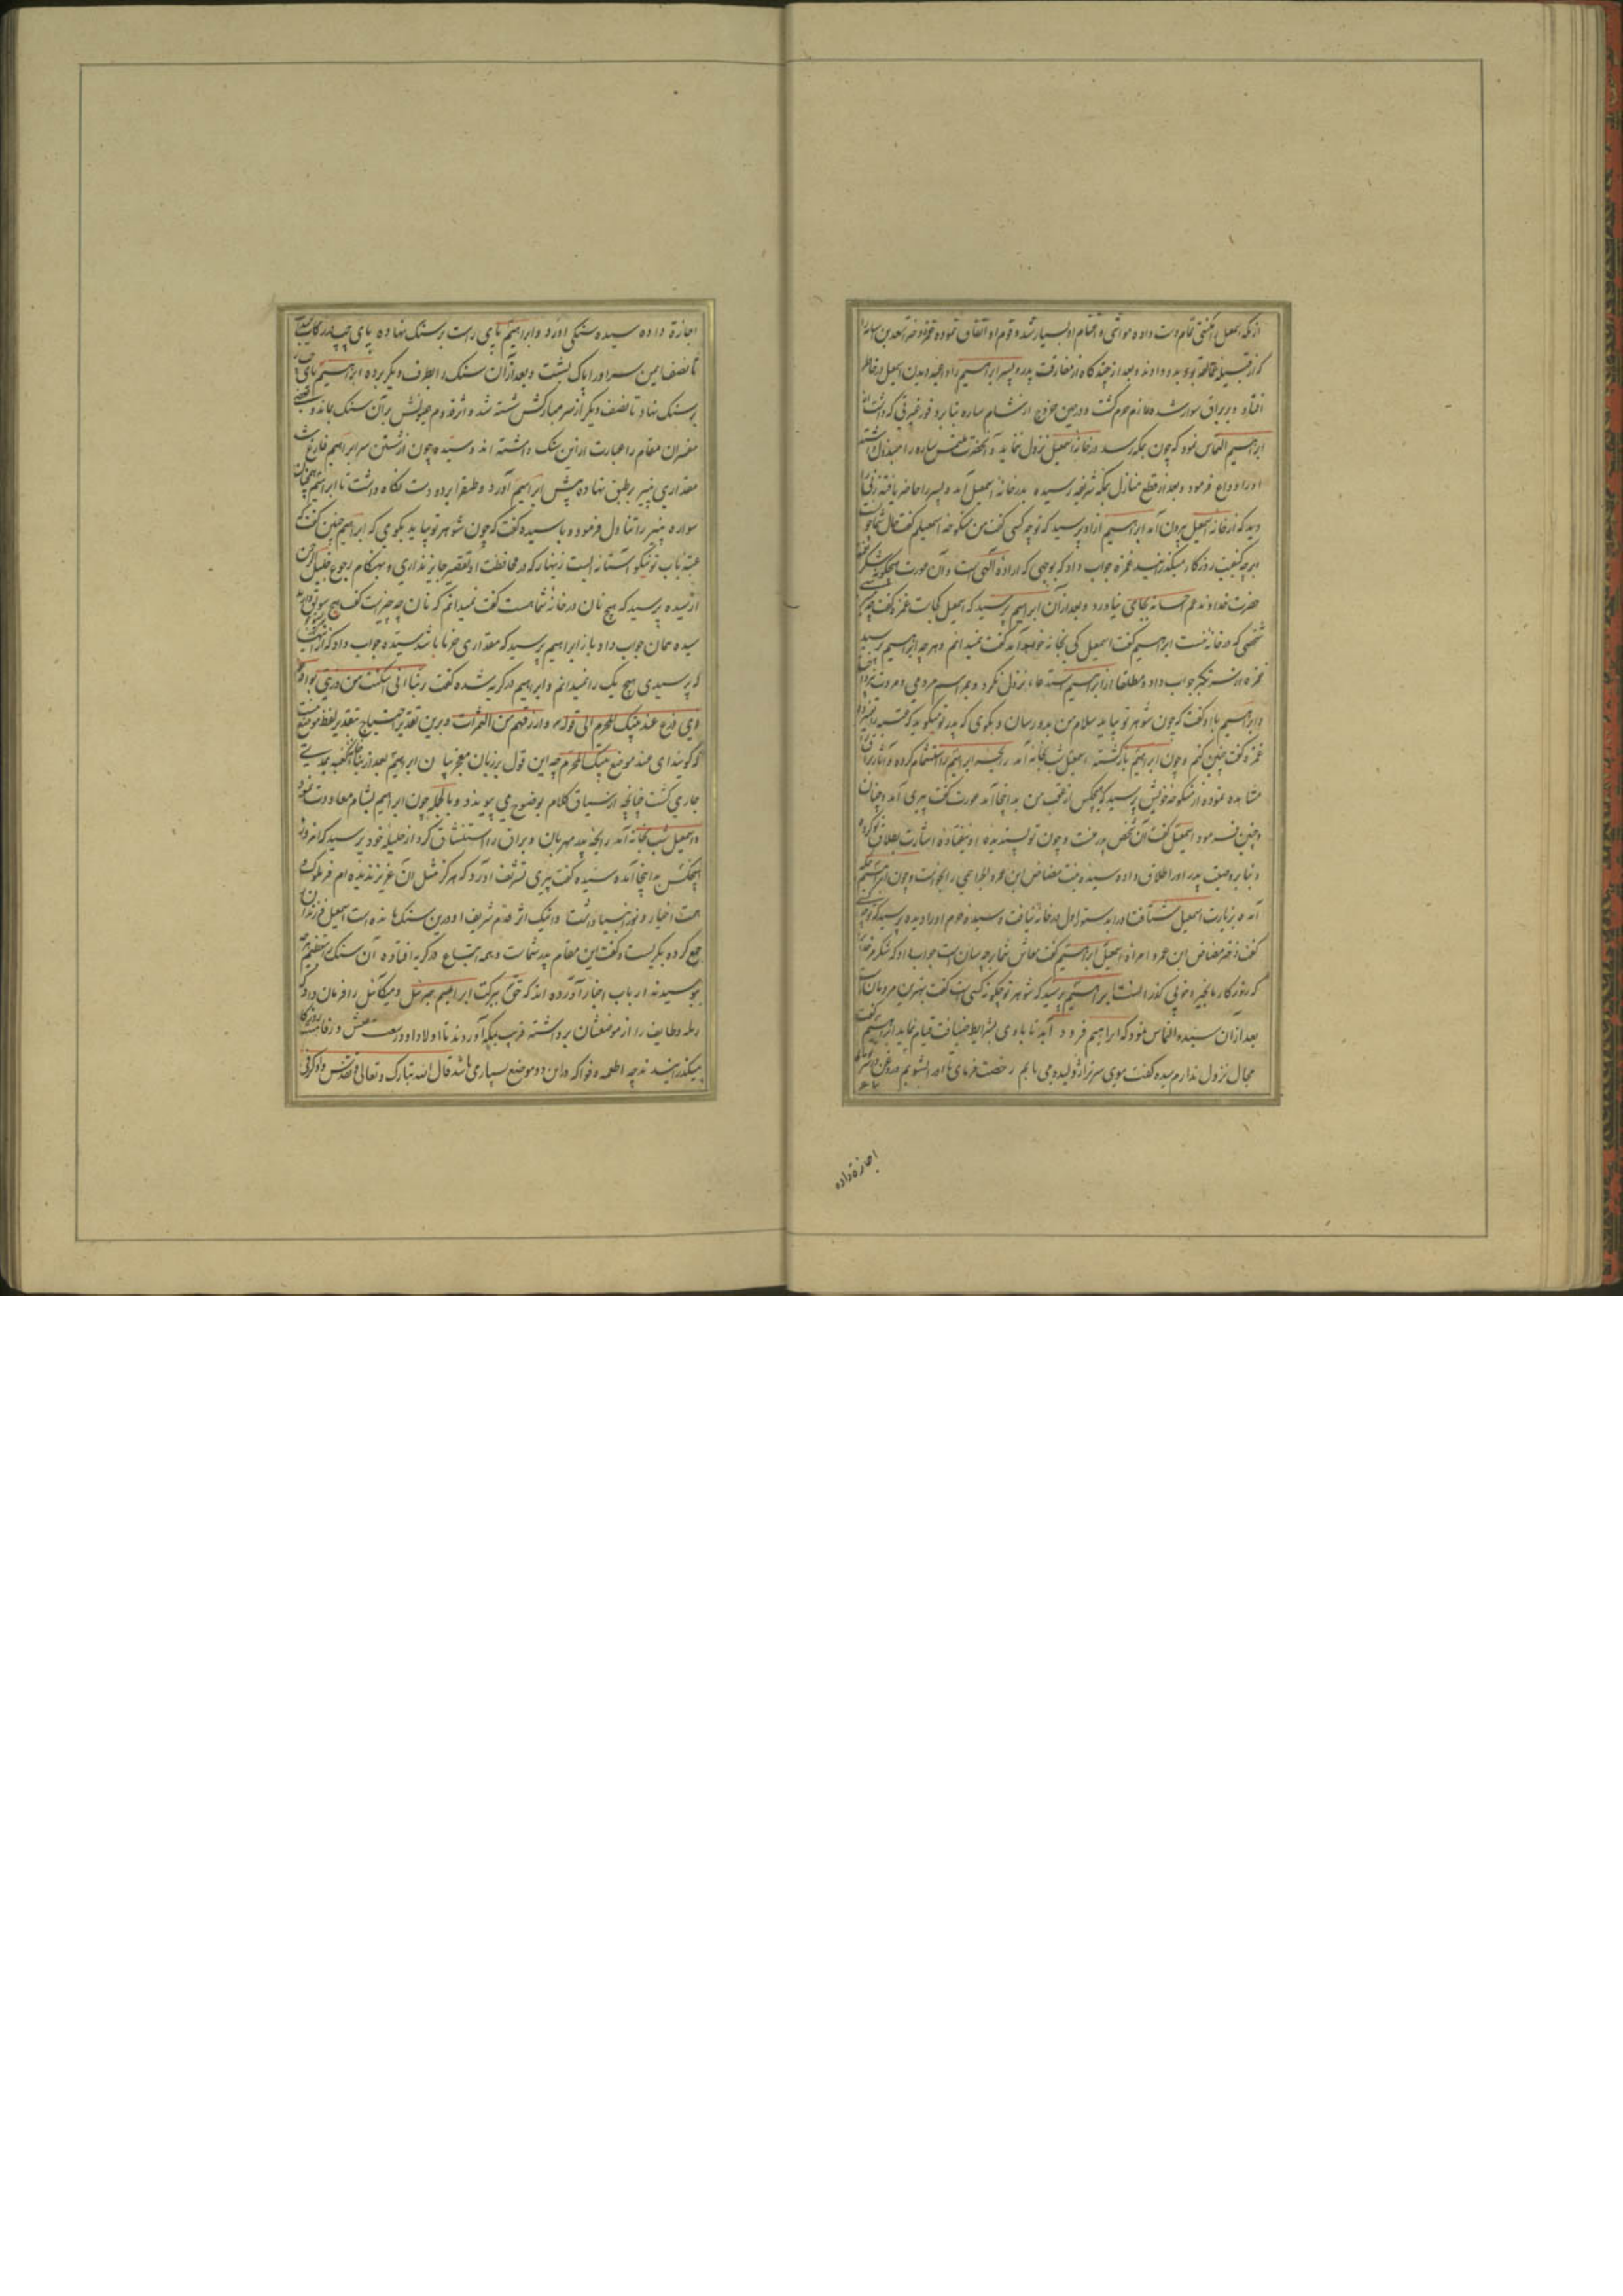 از مکه اسمعیل را مکنتی تمام دست داده مواشی و اغنام او بسیار شد و قوم او اتفاق نموده عمزه دختر سعد بن اسامه را
که از قبیله عمالقه بود بدو دادند و بعد از چند گاه از مفارقت پدر و پسر ابراهیم را داعیه دیدن اسمعیل در خاطر
افتاد و بر براق سوار شده عازم حرم گشت و در حین خروج از شام ساره بنابر وفور غیرتی که داشت از
ابراهیم التماس نمود که چون بمکه رسد در خانه اسمعیل نزول ننماید و آنحضرت ملتمس ساره را مبذول داشته
او را وداع فرمود و بعد از قطع منازل بمکه شریفه رسیده بدر خانه اسمعیل آمد و پسر را حاضر نیافته زنی را
دید که از خانه اسمعیل بیرون آمد ابراهیم از او پرسید که تو چه کسی گفت من منکوحه اسمعیلم گفت حال شما
بر چه کیفیت روزگار میگذرانید عمزه جواب داد که بوجهی که اراده الهی است و آن صورت
حضرت خداوند عم احسانه بجای نیاورد و بعد از آن ابراهیم پرسید که اسمعیل کجاست عمزه گفت
شخصی که در خانه نیست ابراهیم گفت اسمعیل کی بخانه خواهد آمد گفت نمیدانم و هر چه ابراهیم پرسید
عمزه از سر تکبر جواب داد و مطلقا از ابراهیم استدعاء نزول نکرد و مراسم مردمی و مروت
و ابراهیم با او گفت که چون شوهر تو بیاید سلام من بدو رسان و بگوی که پدر تو میگوید که عتبه
عمزه گفت چنین کنم و چون ابراهیم بازگشته اسمعیل شب بخانه آمد رایحه ابراهیم را استشمام کرده و آثار
مشاهده نموده از منکوحه خویش پرسید که هیچکس از عقب من بدانجا آمد عورت گفت پیری آمد و چنان
و چنین فرمود اسمعیل گفت آن شخص پدر منست و چون تو پسندیده او نیفتاده اشارت بطلاق تو کرده
و بنابر وصیت پدر او را طلاق داده سیده بنت مضاض ابن عمرو الجرهمی را بخواست و چون ابراهیم
آمده بزیارت اسمعیل شتافت او را بدستور اول در خانه نیافت و سیده حرم او را دیده پرسید که تو چه کسی
گفت دختر مضاض ابن عمرو امراة اسمعیل ابراهیم گفت معاش شما بر چه سان است جواب داد که شکر مر خدا را
که روزگار ما بخیر و خوبی گذرانست ابراهیم پرسید که شوهر تو چگونه کسی است گفت بهترین مردمان است
بعد از آن سیده التماس نمود که ابراهیم فرود آید تا با وی بشرایط ضیافت قیام نماید ابراهیم گفت
مجال نزول ندارم سیده گفت موی سر تو را ژولیده می یابم رخصت فرمای تا او را بشویم و روغن
اجازة داده
اجازة داده سیده سنگی آورد و ابراهیم پای راست بر سنگ نهاده پای چپ در رکاب
تا نصف ایمن سر او را پاک بشست و بعد از آن سنگ را بطرف دیگر برده ابراهیم پای چپ
بر سنگ نهاد تا نصف دیگر از سر مبارکش شسته شد و اثر قدوم همایونش بر آن سنگ بماند و بعضی
مفسران مقام را عبارت از این سنگ داشته اند و سیده چون از شستن سر ابراهیم فارغ شد
مقداری پنیر بر طبقی نهاده پیش ابراهیم آورد و طبق را بر دو دست نگاه داشت تا ابراهیم همچنان
سواره پنیر را تناول فرمود و با سیده گفت که چون شوهر تو بیاید بگوی که ابراهیم چنین گفت که
عتبه باب تو نیکو آستانه ایست زینهار که در محافظت او تقصیر جایز نداری و بهنگام رجوع خلیل الرحمن
از سیده پرسید که هیچ نان در خانه شما هست گفت نمیدانم که نان چه چیزست گفت هیچ سویق دارید
سیده همان جواب داد باز ابراهیم پرسید که مقداری خرما باشد سیده جواب داد که از اینها
که پرسیدی هیچ یک را نمیدانم و ابراهیم در گریه شده گفت ربنا انی اسکنت من ذریتی بواد غیر
ذی زرع عند بیتک المحرم الی قوله وارزقهم من الثمرات و برین تقدیر احتیاج بتقدیر لفظ موضع نیست
که گویند ای عند موضع بیتک المحرم چه این قول بر زبان معجز بیان ابراهیم بعد از بنای کعبه
جاری گشت چنانچه از سیاق کلام بوضوح می پیوندد و بالجمله چون ابراهیم بشام معاودت نمود
و اسمعیل شب بخانه آمد رایحه پدر مهربان و براق را استنشاق کرد از حلیله خود پرسید که امروز
هیچکس بدانجا آمده سیده گفت پیری تشریف آورد که هرگز مثل آن عزیز ندیده ام
سمت اخیار و نور انبیا داشت و اینک اثر قدم شریف او درین سنگ مانده است اسمعیل فرزندان
جمع کرده بگریست و گفت این مقام پدر شماست و همه باجتماع در گریه افتاده آن سنگ را بتعظیم
بوسیدند ارباب اخبار آورده اند که حق ببرکت ابراهیم جبرئیل و میکائیل را فرمان داد که
رمله و طایف را از موضعشان برداشته قریب بمکه آوردند تا اولاد او در سعت عیش و رفاهیت روزگار
میگذرانیدند چه اطعمه و فواکه در این دو موضع بسیار می باشد قال الله تبارک و تعالی و تقدس